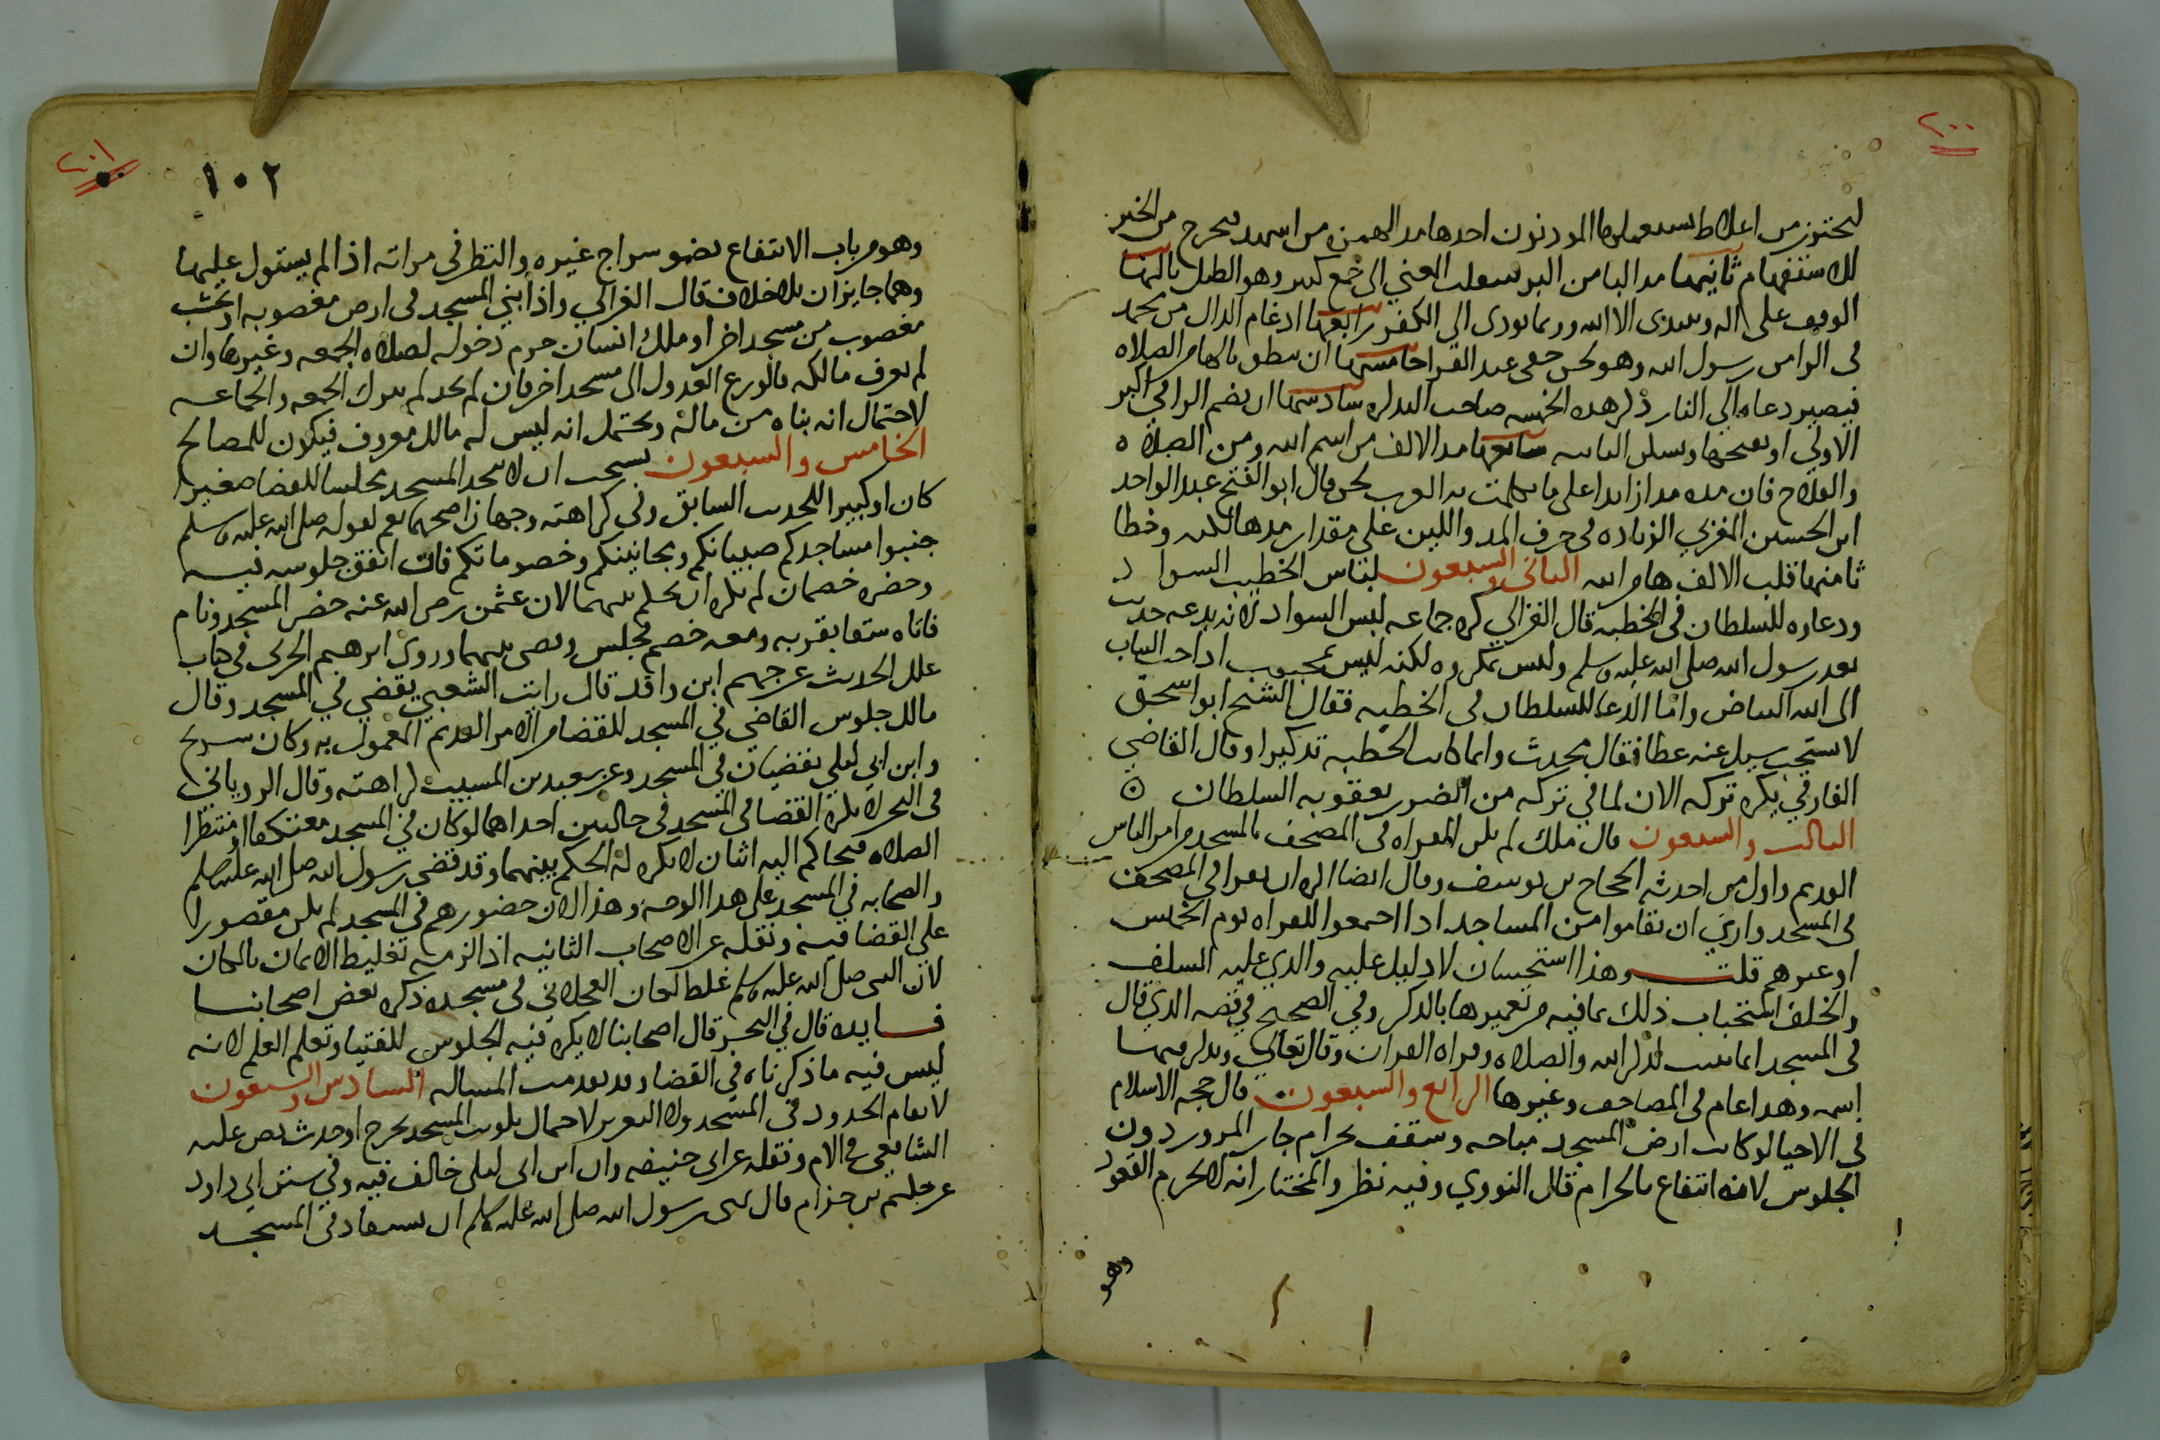 ٢٠٠
ليحترز من اغلاط يستعملها الموذنون احدها مد الهمزه من اشهد فيخرج من الخبر
للاستفهام ثانيها مد البا من اكبر فينقلب المعني الى جمع كبر وهو الطبل ثالثها
الوقف على اله ويبتدى الا الله وربما يودى الى الكفر رابعها ادغام الدال من محمد
فى الرا من رسول الله وهو لحن خفى عند القرا خامسها ان ينطق بالها من الصلاه
فيصير دعا الى النار ذكر هذه الخمسه صاحب التذكره سادسها ان يضم الرا في اكبر
الاولي او يفتحها ويسكن الثانيه سابعها مد الالف من اسم الله ومن الصلاه
والفلاح فان مده مدا زايدا على ما تكلمت به العرب لحن قال ابو الفتح عبد الواحد
ابن الحسين المغربي الزياده فى حرف المد واللين على مقدار مدها لكنه وخطا
ثامنها قلب الالف ها من الله الثانى والسبعون لباس الخطيب السواد
ودعاوه للسلطان فى الخطبه قال الغزالي كره جماعه لبس السواد لانه بدعه حدثت
بعد رسول الله صلى الله عليه وسلم وليس بمكروه لكنه ليس بمحبوب اذ احب الثياب
الى الله البياض واما الدعا للسلطان فى الخطبه فقال الشيخ ابو اسحق
لا يستحب سيل عنه عطا فقال محدث وانما كانت الخطبه تذكيرا وقال القاضي
الفارقي يكره تركه الان لما في تركه من الضرر بعقوبه السلطان
الثالث والسبعون قال ملك لم تكن القراه فى المصحف بالمسجد من امر الناس
القديم واول من احدثه الحجاج بن يوسف وقال ايضا اكره ان يقرا في المصحف
فى المسجد وارى ان يقاموا من المساجد اذا اجتمعوا للقراه يوم الخميس
او غيره قلت وهذا استحسان لا دليل عليه والذي عليه السلف
والخلف استحباب ذلك لما فيه من تعميرها بالذكر وفي الصحيح في قصه الذي قال
فى المسجد انما بنيت لذكر الله والصلاه وقراه القران وقال تعالى ويذكر فيها
اسمه وهذا عام فى المصاحف وغيرها الرابع والسبعون قال حجه الاسلام
فى الاحيا لو كانت ارض المسجد مباحه وسقف بحرام جاز المرور دون
الجلوس لانه انتفاع بالحرام قال النووي وفيه نظر والمختار انه لا يحرم القعود
وهو
٢٠١
١٠٢
وهو من باب الانتفاع بضو سراج غيره والنظر فى مراته اذا لم يستول عليها
وهما جايزان بلا خلاف قال الغزالي واذا بني المسجد فى ارض مغصوبه او بخشب
مغصوب من مسجد اخر او ملك انسان حرم دخوله لصلاه الجمعه وغيرها وان
لم يعرف مالكه فالورع العدول الى مسجد اخر فان لم يجد لم يترك الجمعه والجماعه
لاحتمال انه بناه من ماله ويحتمل انه ليس له مالك معروف فيكون للمصالح
الخامس والسبعون يستحب ان لا يتخذ المسجد مجلسا للقضا صغيرا
كان او كبيرا للحديث السابق وفي كراهته وجهان اصحهما نعم لقوله صلى الله عليه وسلم
جنبوا مساجدكم صبيانكم ومجانينكم وخصوماتكم فان اتفق جلوسه فيه
وحضره خصمان لم يكره ان يحكم بينهما لان عثمن رضى الله عنه حضر المسجد ونام
فاتاه سقا بقربه ومعه خصم فجلس وقضى بينهما وروى ابرهيم الحربى في كتاب
علل الحديث عن جهم ابن واقد قال رايت الشعبي يقضي في المسجد وقال
مالك جلوس القاضي في المسجد للقضا من الامر القديم المعمول به وكان شريح
وابن ابي ليلي يقضيان في المسجد وعن سعيد بن المسيب كراهته وقال الروياني
فى البحر يكره القضا فى المسجد في حالتين احداهما لو كان في المسجد معتكفا او منتظرا
الصلاه فتحاكم اليه اثنان لا يكره له الحكم بينهما وقد قضى رسول الله صلى الله عليه وسلم
والصحابه في المسجد على هذا الوجه وهذا لان حضورهم في المسجد لم يكن مقصورا
على القضا فيه ونقله عن الاصحاب الثانيه اذا لزمه تغليظ الايمان بالمكان
لان النبى صلى الله عليه وسلم غلظ لعان العجلاني فى مسجده ذكره بعض اصحابنا
فايده قال في البحر قال اصحابنا لا يكره فيه الجلوس للفتيا وتعلم العلم لانه
ليس فيه ما ذكرناه في القضا وقد تقدمت المساله السادس والسبعون
لا تقام الحدود فى المسجد ولا التعزير لاحتمال تلويث المسجد بجرح او حدث نص عليه
الشافعى في الام ونقله عن ابى حنيفه وان ابن ابى ليلى خالف فيه وفي سنن ابي داود
عن حكيم بن حزام قال نهى رسول الله صلى الله عليه وسلم ان يستقاد فى المسجد